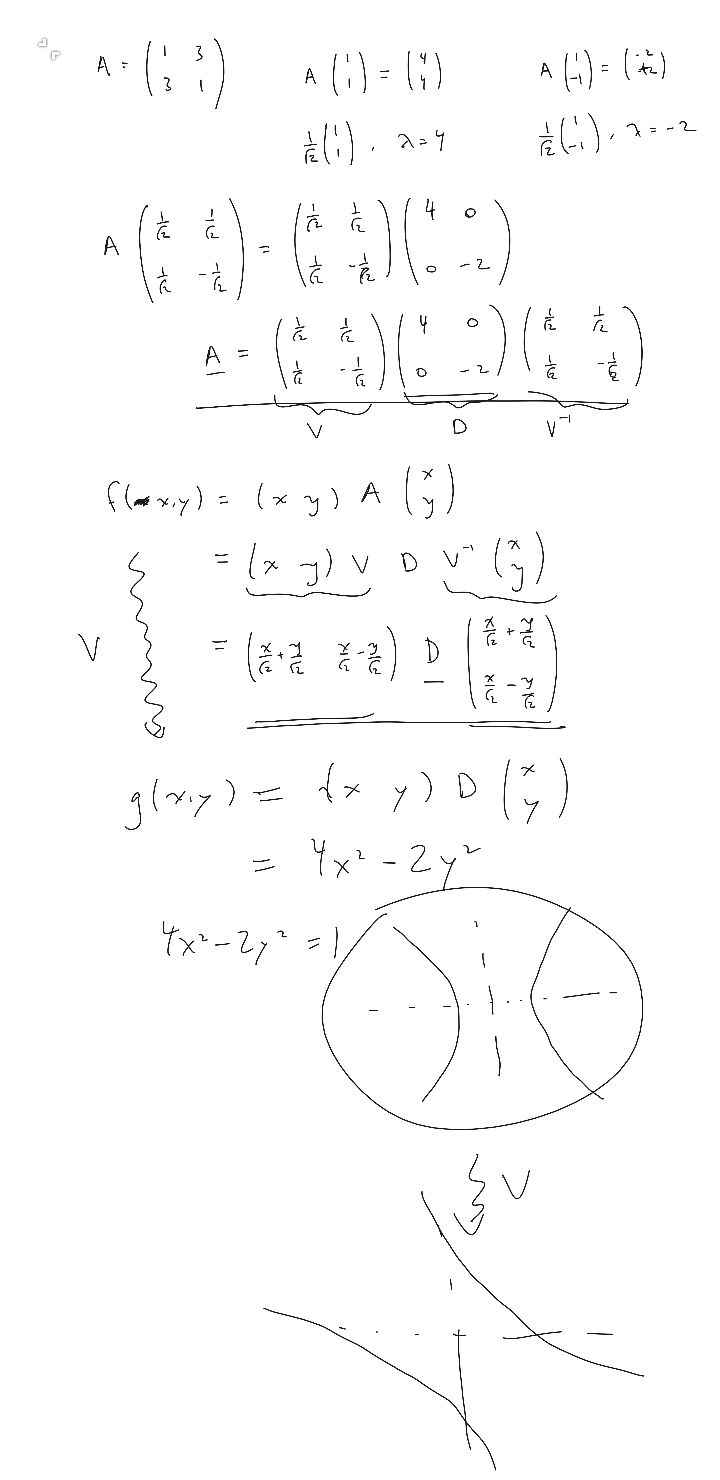 A = (1 3; 3 1)    A (1; 1) = (4; 4)    A (1; -1) = (-2; +2)
1/√2 (1; 1), λ = 4    1/√2 (1; -1), λ = -2
A (1/√2 1/√2; 1/√2 -1/√2) = (1/√2 1/√2; 1/√2 -1/√2) (4 0; 0 -2)
A = (1/√2 1/√2; 1/√2 -1/√2) (4 0; 0 -2) (1/√2 1/√2; 1/√2 -1/√2)
V    D    V⁻¹
f(x,y) = (x y) A (x; y)
= (x y) V D V⁻¹ (x; y)
V
= (x/√2 + y/√2    x/√2 - y/√2) D (x/√2 + y/√2; x/√2 - y/√2)
g(x,y) = (x y) D (x; y)
= 4x² - 2y²
4x² - 2y² = 1
V